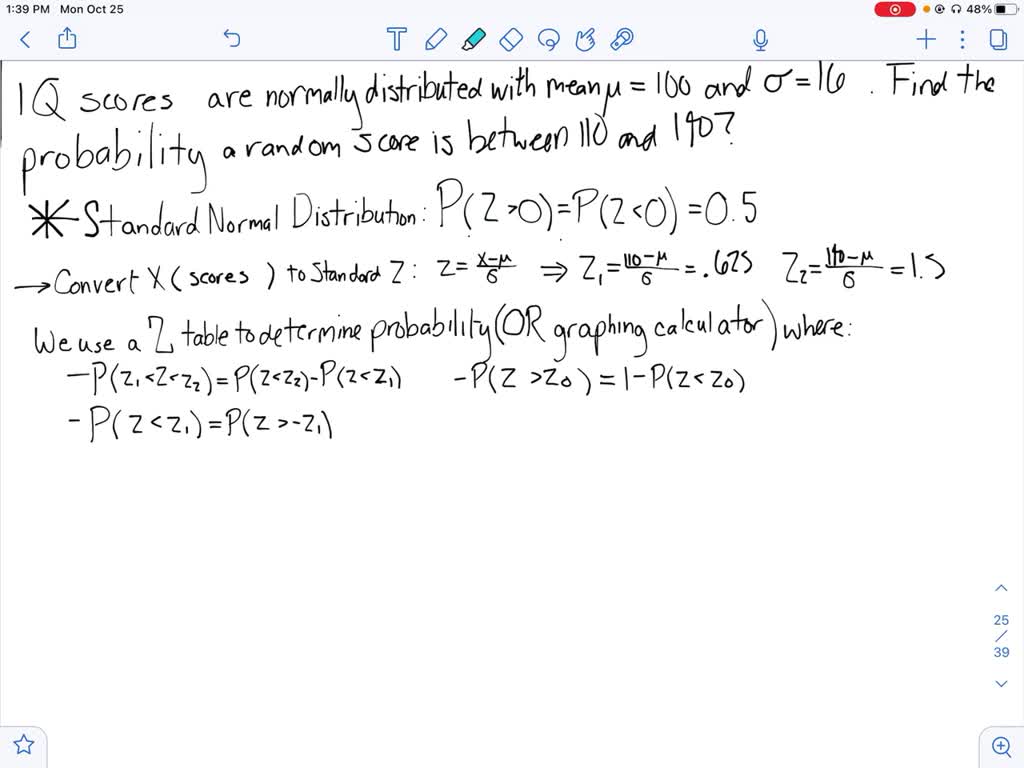 1:39 PM Mon Oct 25
48%
IQ scores are normally distributed with mean μ = 100 and σ = 16 . Find the
probability a random score is between 110 and 190?
* Standard Normal Distribution: P(Z>0)=P(Z<0)=0.5
→ Convert X (scores ) to Standard Z : z= x-μ/6 ⇒ Z₁= 110-μ/6 = .625 Z₂= 190-μ/6 = 1.5
We use a Z table to determine probability (OR graphing calculator) where:
-P(Z₁<Z<Z₂)=P(Z<Z₂)-P(Z<Z₁) -P(Z>Z₀)=1-P(Z<Z₀)
-P(Z<Z₁)=P(Z>-Z₁)
25
/
39